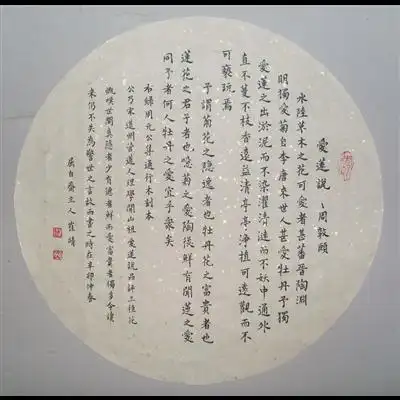 愛蓮說、周敦頤
水陸草木之花可愛者甚蕃晉陶淵
明獨愛菊自李唐來世人甚愛牡丹予獨
愛蓮之出淤泥而不染濯清漣而不妖中通外
直不蔓不枝香遠益清亭亭淨植可遠觀而不
可褻玩焉
予謂菊花之隱逸者也牡丹花之富貴者也
蓮花之君子者也噫菊之愛陶後鮮有聞蓮之愛
同予者何人牡丹之愛宜乎衆矣
右錄周元公集通行本刻本
公乃宋道州營道人理學開山祖愛蓮說品評三種花
嘆世間真隱者少有德者鮮而愛富貴者獨多今讀
來仍不失為警世之言故而書之時在辛卯仲春
自齋主人崔晴